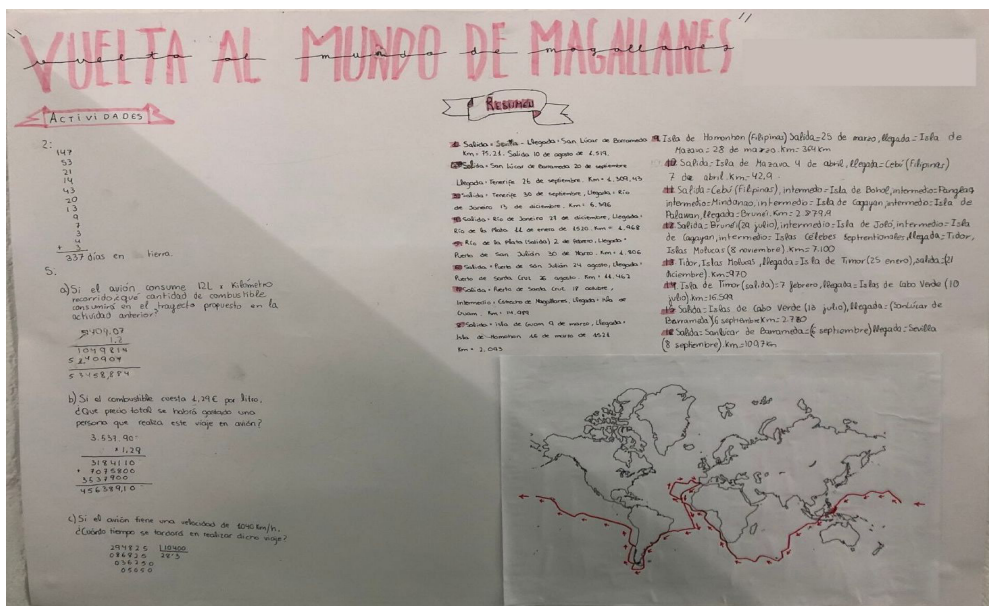 "VUELTA AL MUNDO DE MAGALLANES"
vuelta al mundo de magallanes
ACTIVIDADES
2:
147
53
21
14
43
20
13
9
7
3
4
+ 3
337 días en tierra.
5.
a) Si el avión consume 12L x Kilómetro
recorrido ¿que cantidad de combustible
consumirá en el trayecto propuesto en la
actividad anterior?
1.2
1049814
53458,884
b) Si el combustible cuesta 1,29€ por litro,
¿Que precio total se habrá gastado una
persona que realiza este viaje en avión?
3.537.90
x 1.29
3184110
+ 7075800
3537900
456389,10
c) Si el avión tiene una velocidad de 1040 Km/h.
¿Cuánto tiempo se tardará en realizar dicho viaje?
294825 10400
086825 28'3
036250
05050
RESUMEN
Salida = Sevilla - Llegada = San Lúcar de Barrameda
Km = 75,21. Salida 10 de agosto de 1.519.
Salida = San Lúcar de Barrameda 20 de septiembre
Llegada = Tenerife 26 de septiembre. Km = 1.309,43
Salida = Tenerife 30 de septiembre, Llegada = Río
de Janeiro 13 de diciembre. Km = 6,396
Salida = Río de Janeiro 27 de diciembre, Llegada =
Río de la Plata 11 de enero de 1520. Km = 1.968
Río de la Plata (Salida) 2 de febrero, Llegada =
Puerto de San Julián 30 de Marzo. Km = 1.806
Salida = Puerto de San Julián 24 agosto, Llegada =
Puerto de Santa Cruz 26 agosto. Km = 11.462
Salida = Puerto de Santa Cruz 18 octubre,
Intermedio = Estrecho de Magallanes, Llegada = Isla de
Guam. Km = 14.979
Salida = Isla de Guam 9 de marzo, Llegada =
Isla de Homonhon 16 de marzo de 1521
Km = 2.093
9 Isla de Homonhon (Filipinas) Salida = 25 de marzo, llegada = Isla de
Mazava = 28 de marzo. Km = 364km
10 Salida = Isla de Mazava 4 de abril, llegada = Cebú (Filipinas)
7 de abril. Km = 42,9
11 Salida = Cebú (Filipinas), intermedo = Isla de Bohol, intermedio = Panglao,
intermedio = Mindanao, intermedio = Isla de Cagayan, intermedio = Isla de
Palawan, llegada = Brunéi. Km = 2.879,9
12 Salida = Brunéi (29 julio), intermedio = Isla de Joló, intermedio = Isla
de Cagayan, intermedio = Islas Célebes septentrionales, llegada = Tidor,
Islas Molucas (8 noviembre). Km = 7.100
13 Tidor, Islas Molucas, llegada = Isla de Timor (25 enero), salida = (21
diciembre). Km = 970
14 Isla de Timor (salida) = 7 febrero, llegada = Islas de Cabo Verde (10
julio). km = 16.599
15 Salida = Islas de Cabo Verde (13 julio), llegada = (Sanlúcar de
Barrameda) 6 septiembre Km = 2.780
16 Salida = Sanlúcar de Barrameda = (6 septiembre) llegada = Sevilla
(8 septiembre). Km = 109,7km